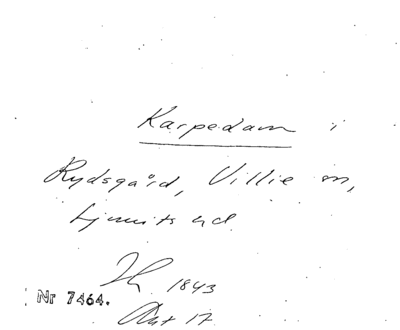 Karpedam i
Rydsgård, Villie sn,
Ljunits hd.
1843
Nr 7464.
17